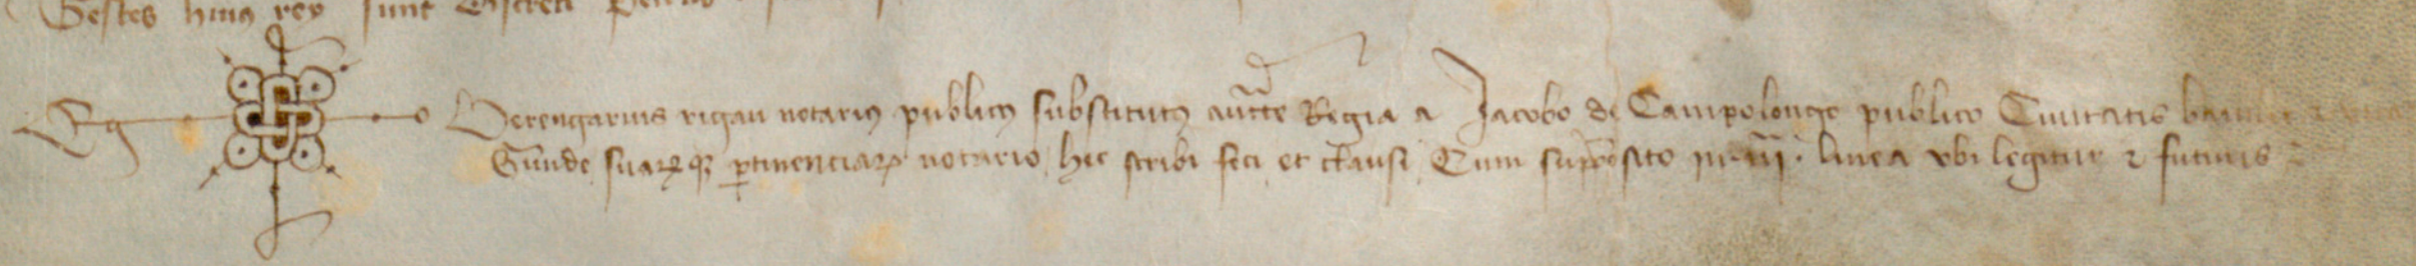 Testes huius rey sunt discreti Petrus
Eg Berengarius rigau notarius publicus substitutus auctte Regia a Jacobo de Campolongo publico Ciuitatis
Gunde suarumq pertinenciarum notario hec scribi feci et clausi Cum supraposito in iiii linea vbi legitur et futuris